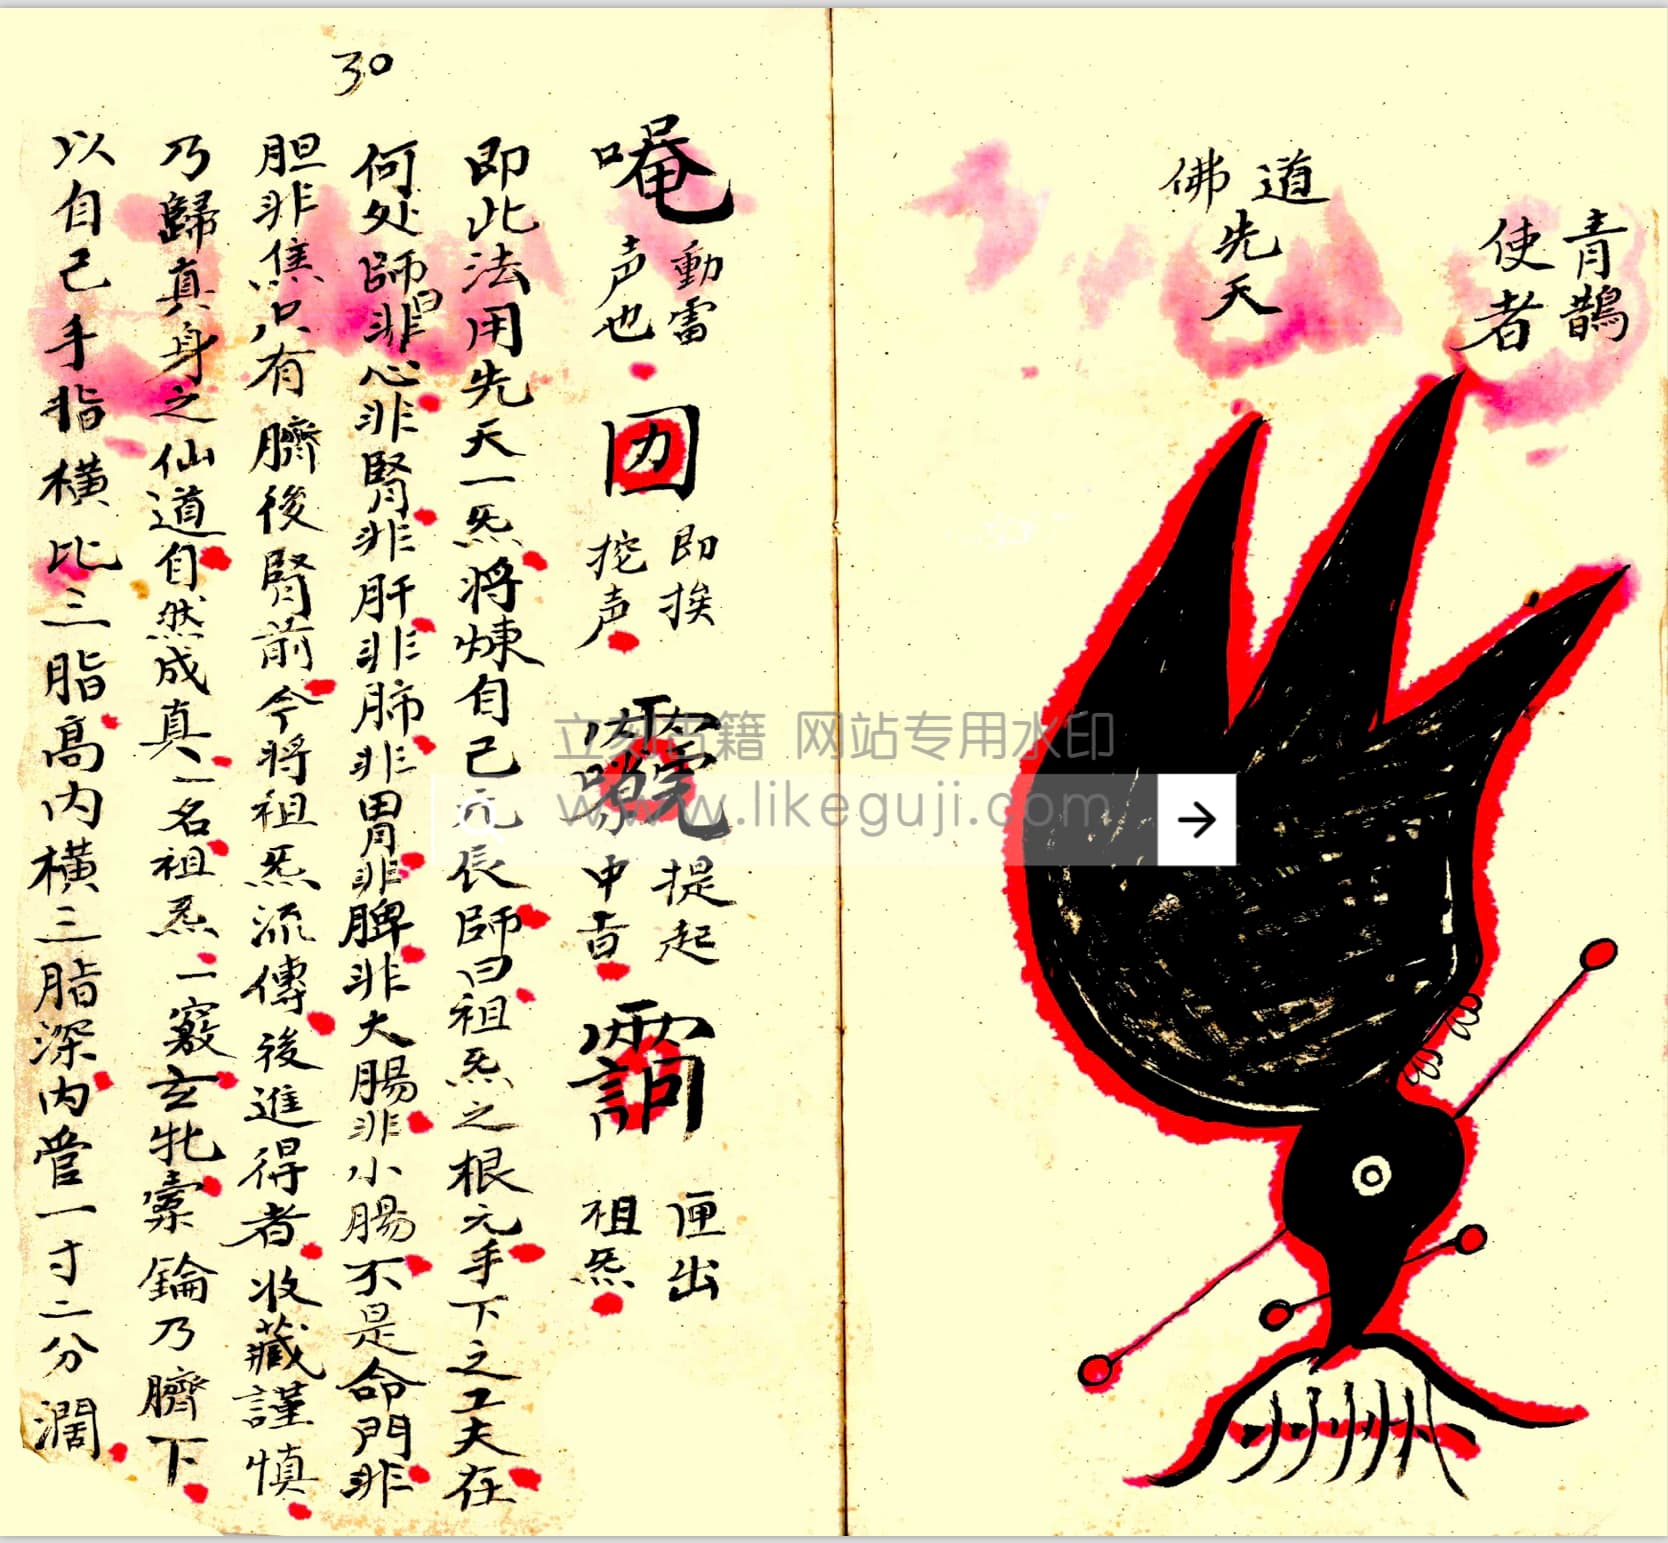 青鵲
使者
道
佛
先天
唵 動雷声也 囘 即挨挖声 提起中旨 匣出祖炁
即此法用先天一炁将煉自己元長師曰祖炁之根元手下之工夫在
何处師曰非心非腎非肝非肺非胃非脾非大腸非小腸不是命門非
胆非焦只有臍後腎前今将祖炁流傳後進得者收藏謹慎
乃歸真身之仙道自然成真一名祖炁一竅玄牝橐鑰乃臍下
以自己手指横比三脂高内横三脂深内管一寸二分濶
30
立刻古籍 网站专用水印
www.likeguji.com